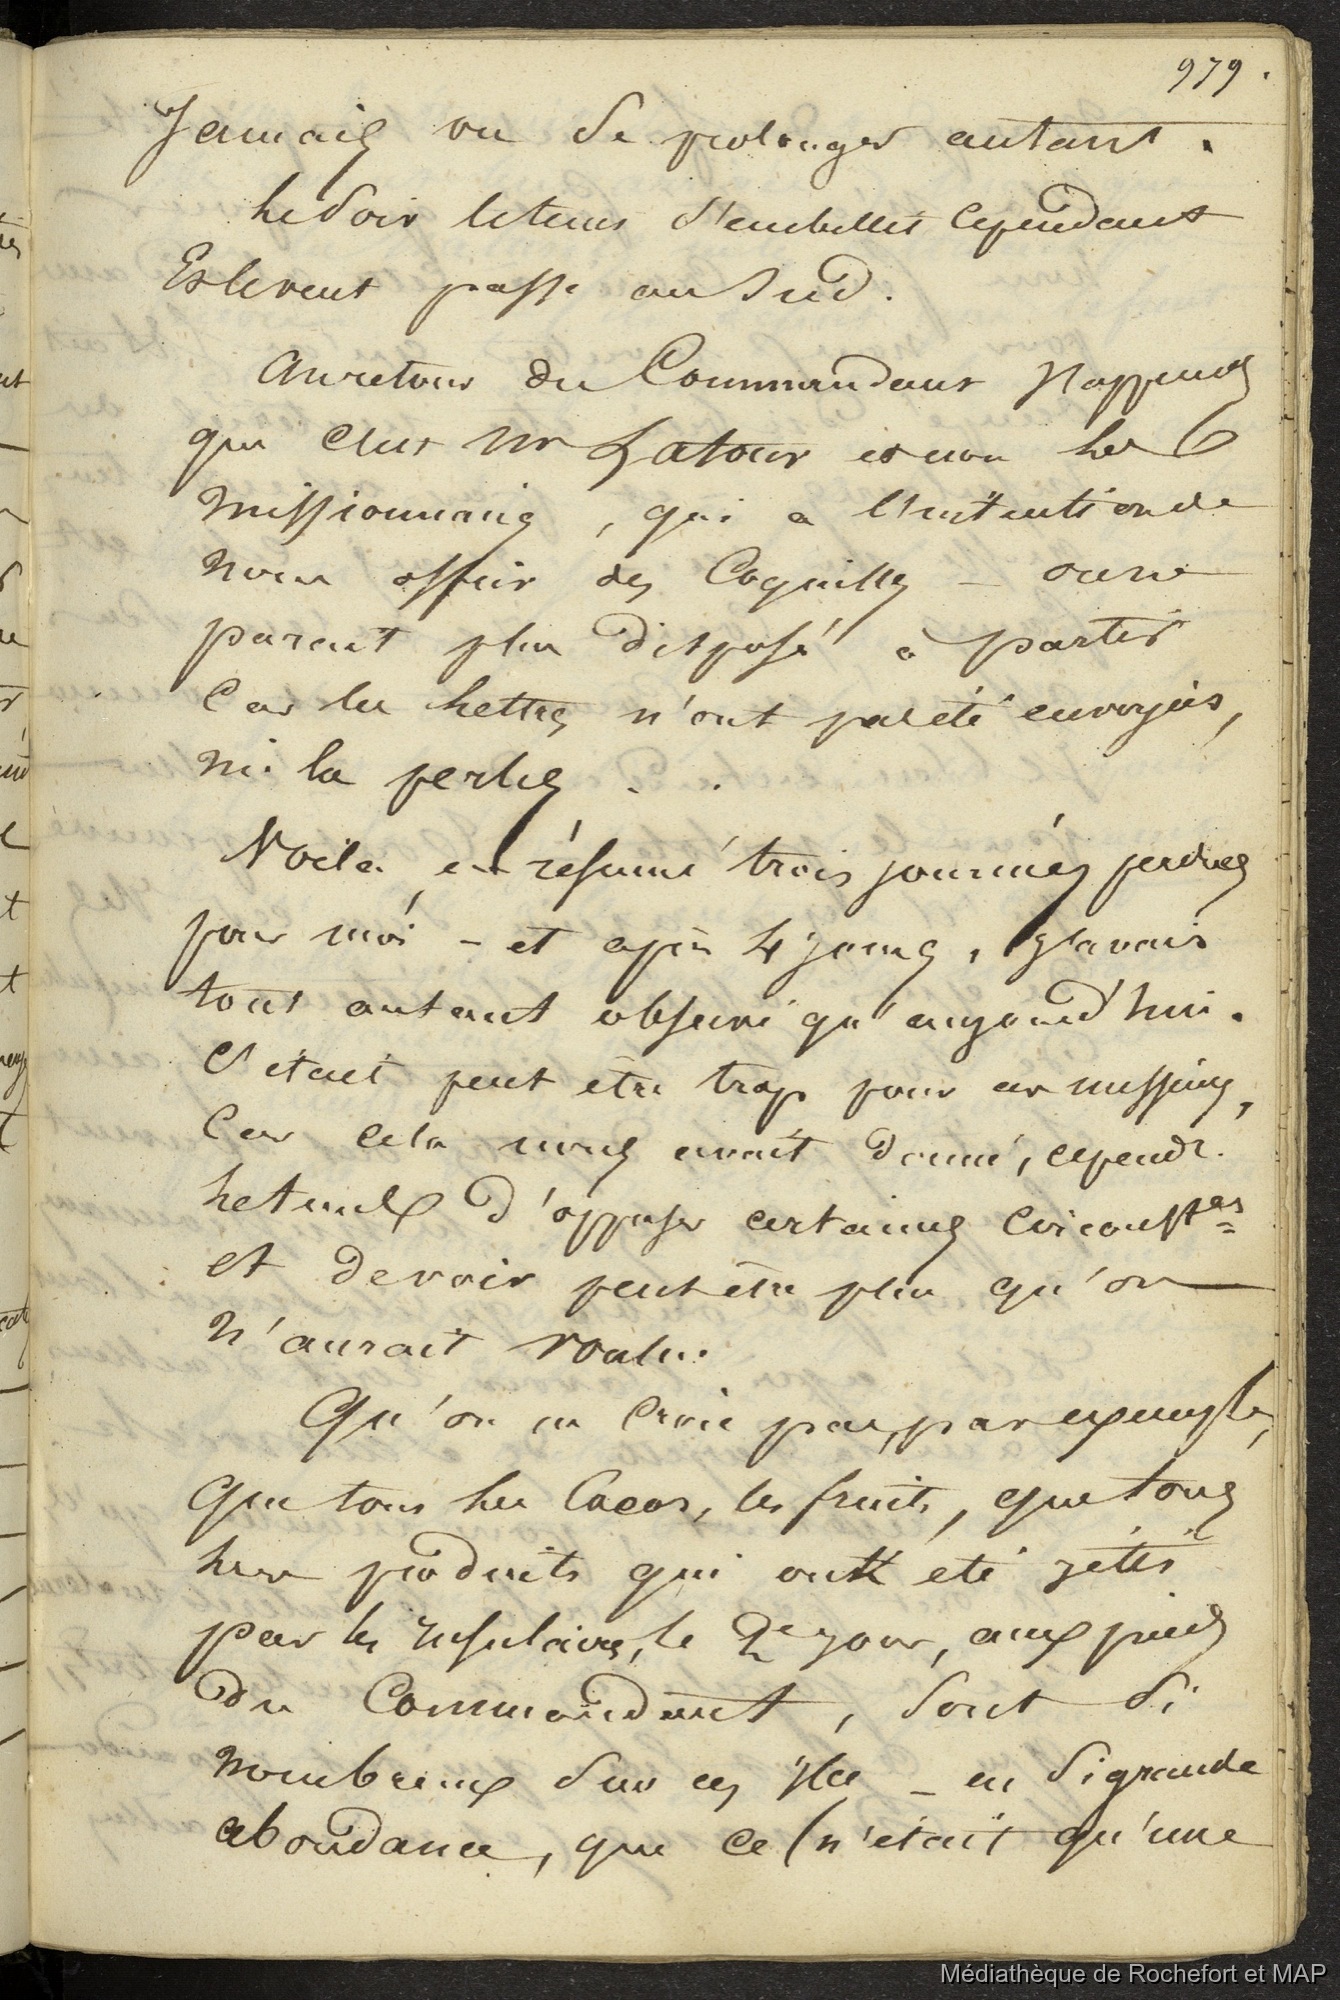 979.
Jamais vu se prolonger autant.
Le soir le tems s'embellit cependant
Et le vent passe au Sud.
Au retour du Commandant J'apprends
que c'est Mr Latour et non les
missionnaires, qui a l'intention de
nous offrir des Coquilles – on ne
parait plus disposé à partir
Car les lettres n'ont pas été envoyées,
ni les perles . .
Voila, en résumé trois journées perdues
pour moi – et après 4 jours, J'avais
tout autant observé qu'aujourd'hui.
C'était peut être trop pour ces messieurs,
Car cela nous avait donné, cependt.
le tems d'apposer certaines circonstces
et de voir peut être plus qu'on
n'aurait voulu.
Qu'on ne croie pas, par exemple,
que tous les Cocos, les fruits, que tous
les produits qui ont été jetés
par les insulaires, le 2e jour, aux pieds
du Commandant, sont si
nombreux sur ces îles – en si grande
abondance, que ce (n'était qu'une
Médiathèque de Rochefort et MAP